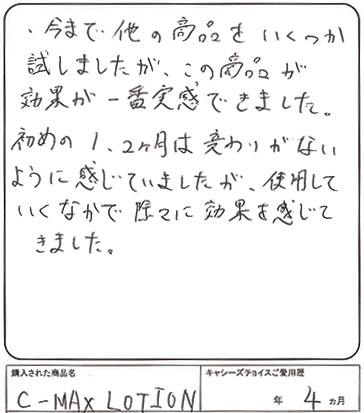 ・今まで他の商品をいくつか
試しましたが、この商品が
効果が一番実感できました。
初めの1、2ヶ月は変わりがない
ように感じていましたが、使用して
いくなかで除々に効果を感じて
きました。
購入された商品名
C-MAX LOTION
キャシーズチョイスご愛用歴
年 4 ヵ月